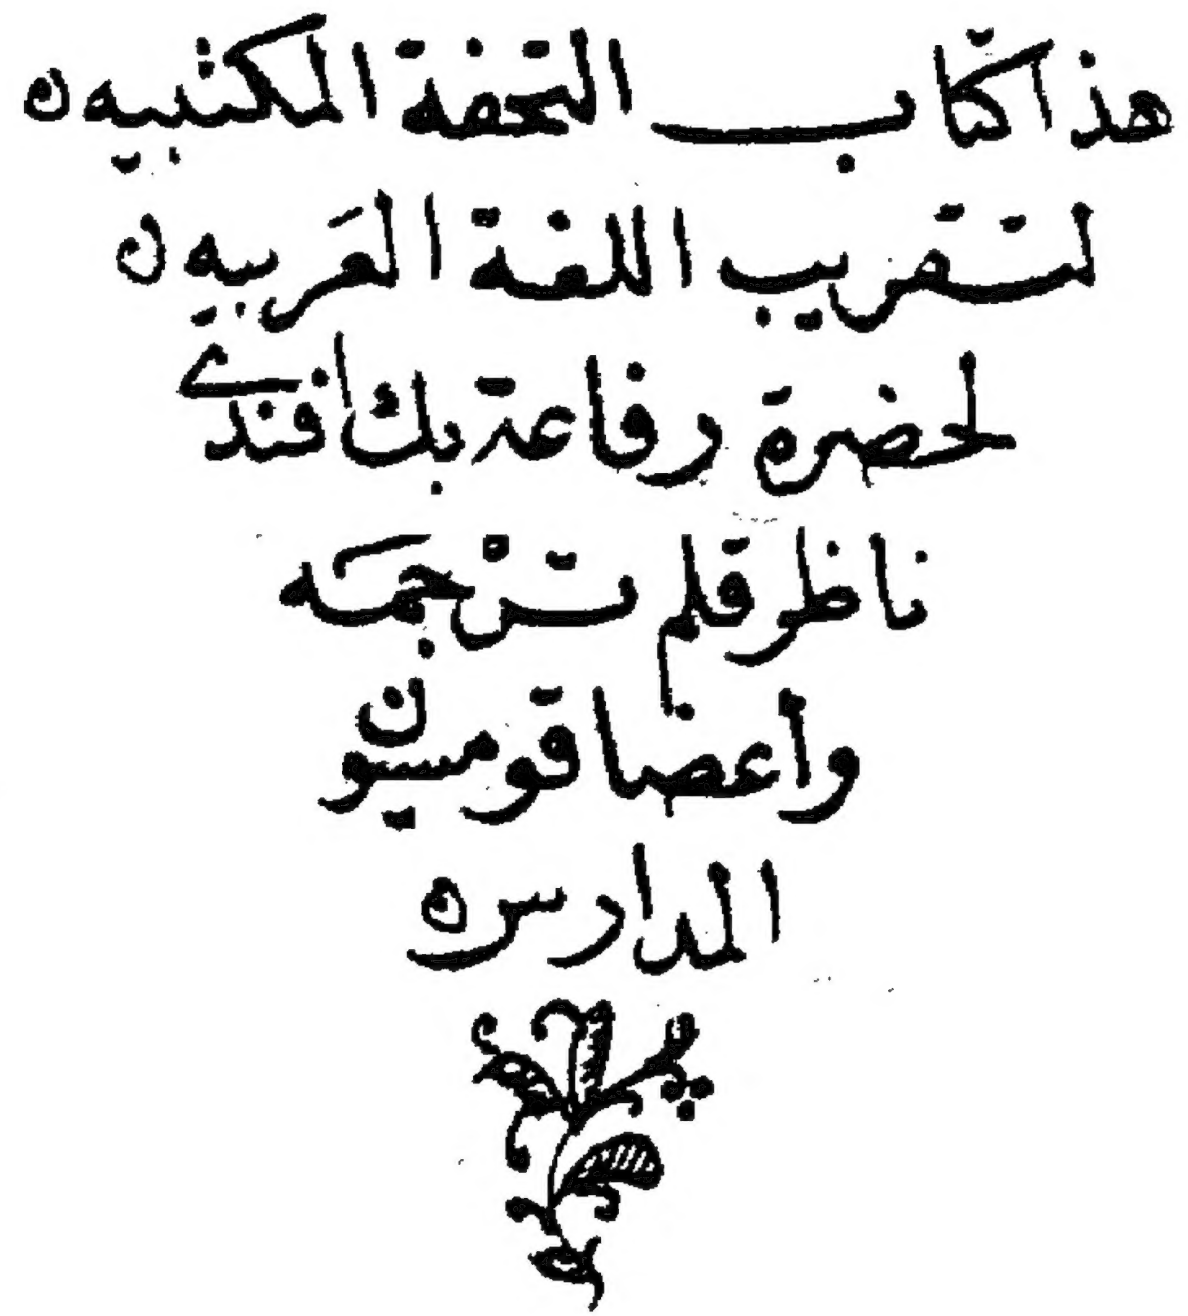 هذا كتّاب التحفة المكتبيه ٥
لتقريب اللغة العَربيه ٥
لحضرة رفاعة بك افندى
ناظر قلم ترْجمَه
وأعضا قوميسيون
المدارس ٥